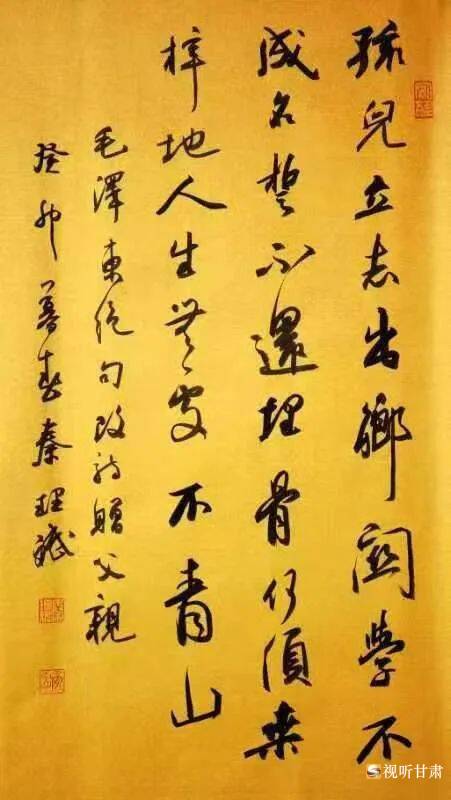 孩兒立志出鄉關學不
成名誓不還埋骨何須桑
梓地人生無處不青山
毛澤東絕句改詩贈父親
癸卯暮春秦理斌
视听甘肃